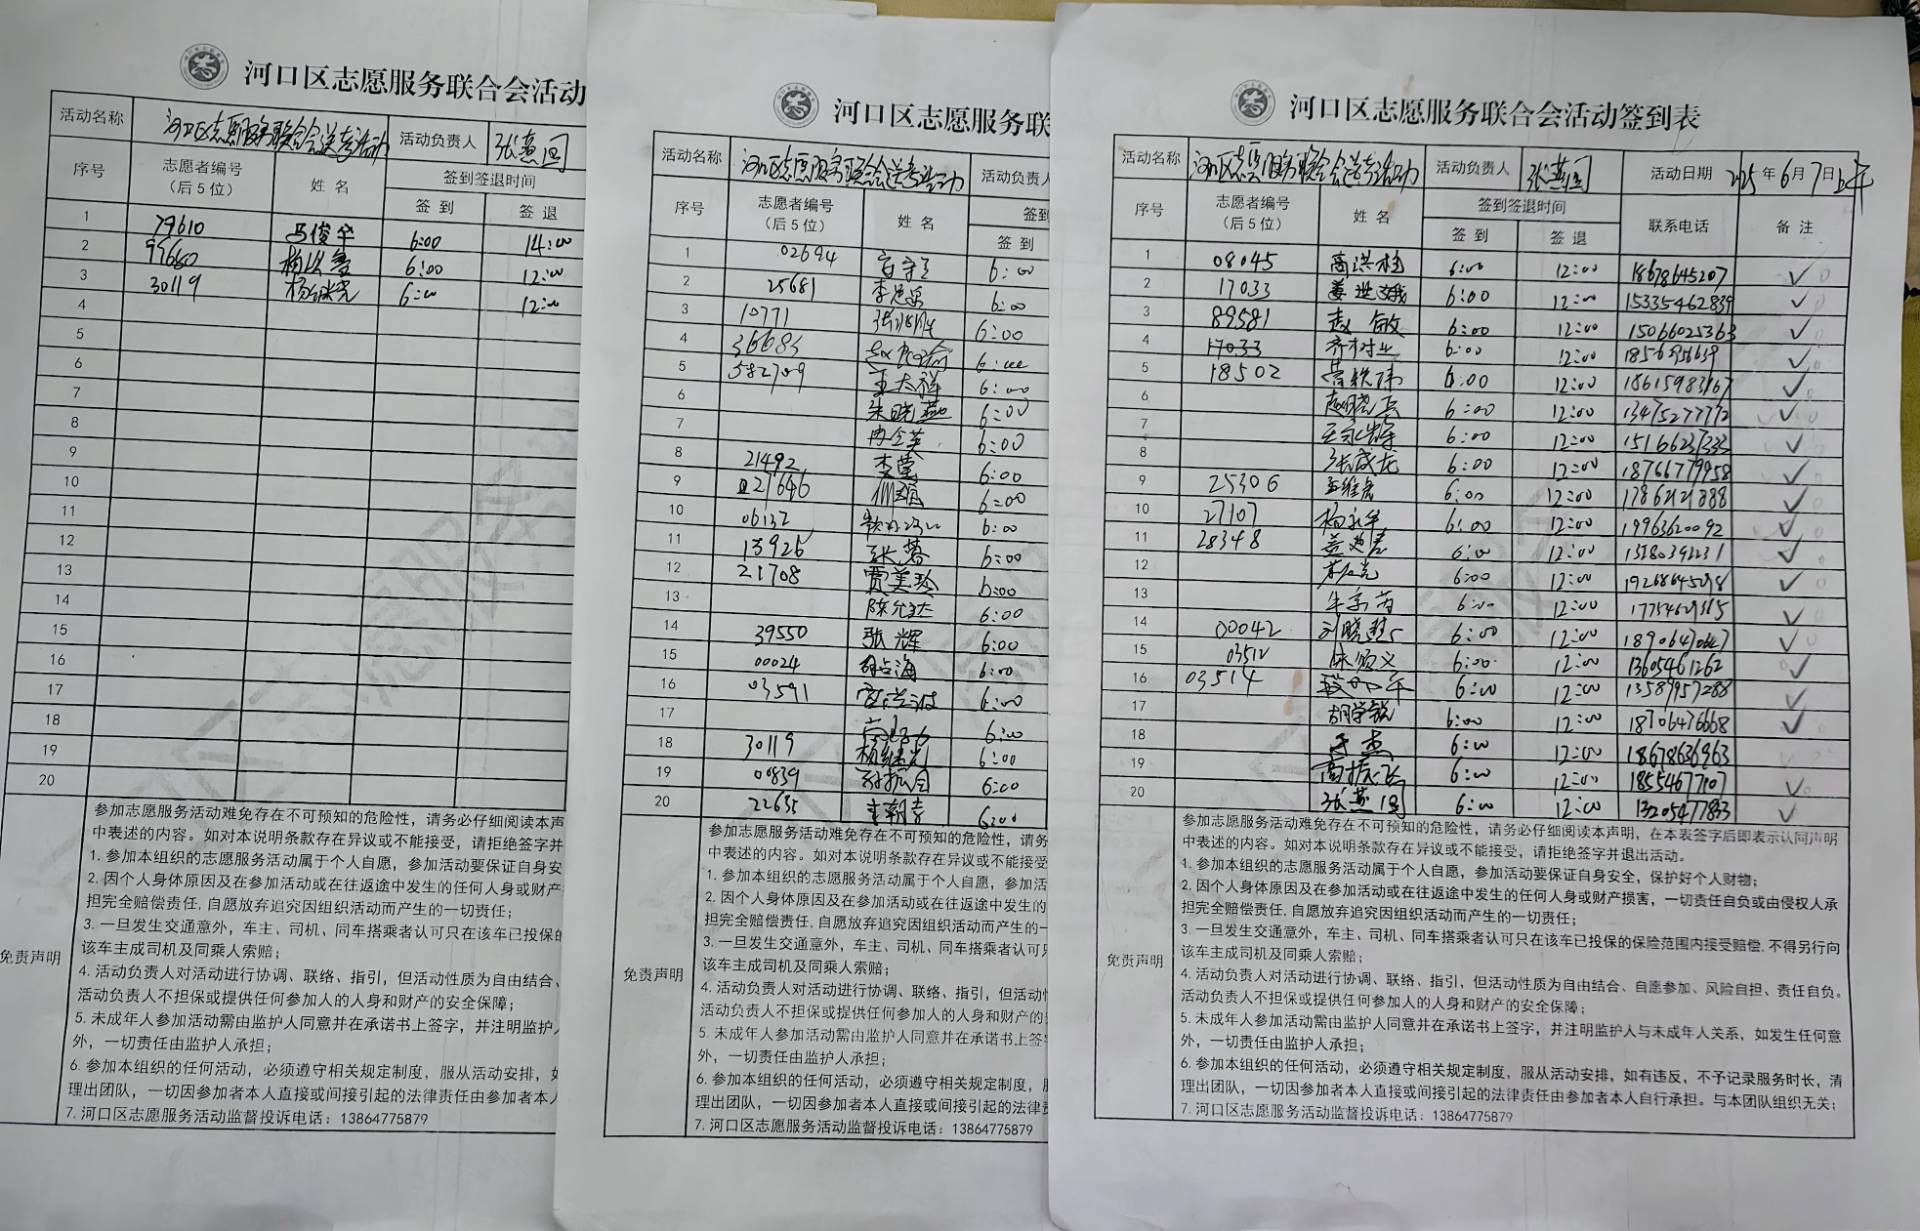 河口区志愿服务联合会活动
活动名称 河口区志愿服务联合会送考活动 活动负责人 张燕
序号 志愿者编号（后5位） 姓名 签到签退时间
签到 签退
1 79610 马俊华 6:00 14:00
2 99660 6:00 12:00
3 30119 杨继光 6:00 12:00
4
5
6
7
8
9
10
11
12
13
14
15
16
17
18
19
20
免责声明
参加志愿服务活动难免存在不可预知的危险性，请务必仔细阅读本声
中表述的内容。如对本说明条款存在异议或不能接受，请拒绝签字并
1. 参加本组织的志愿服务活动属于个人自愿，参加活动要保证自身安
2. 因个人身体原因及在参加活动或在往返途中发生的任何人身或财产
担完全赔偿责任,自愿放弃追究因组织活动而产生的一切责任；
3. 一旦发生交通意外，车主、司机、同车搭乘者认可只在该车已投保的
该车主成司机及同乘人索赔；
4. 活动负责人对活动进行协调、联络、指引，但活动性质为自由结合、
活动负责人不担保或提供任何参加人的人身和财产的安全保障；
5. 未成年人参加活动需由监护人同意并在承诺书上签字，并注明监护人
外，一切责任由监护人承担；
6. 参加本组织的任何活动，必须遵守相关规定制度，服从活动安排，如
理出团队，一切因参加者本人直接或间接引起的法律责任由参加者本人
7. 河口区志愿服务活动监督投诉电话：13864775879
河口区志愿服务联
活动名称 河口区志愿服务联合会送考活动 活动负责人
序号 志愿者编号（后5位） 姓名 签到
签到
1 02694 6:00
2 25681 6:00
3 10771 6:00
4 36683 6:00
5 582709 王大祥 6:00
6 朱晓燕 6:00
7 6:00
8 21492 李莹 6:00
9 21646 6:00
10 06132 6:00
11 13926 张蓉 6:00
12 21708 贾美玲 6:00
13 陈允达 6:00
14 39550 张辉 6:00
15 00024 胡占海 6:00
16 03591 6:00
17 6:00
18 30119 杨继光 6:00
19 00839 6:00
20 22635 6:00
免责声明
参加志愿服务活动难免存在不可预知的危险性，请务
中表述的内容。如对本说明条款存在异议或不能接受
1. 参加本组织的志愿服务活动属于个人自愿，参加活
2. 因个人身体原因及在参加活动或在往返途中发生的
担完全赔偿责任,自愿放弃追究因组织活动而产生的一
3. 一旦发生交通意外，车主、司机、同车搭乘者认可只
该车主成司机及同乘人索赔；
4. 活动负责人对活动进行协调、联络、指引，但活动
活动负责人不担保或提供任何参加人的人身和财产的
5. 未成年人参加活动需由监护人同意并在承诺书上签
外，一切责任由监护人承担；
6. 参加本组织的任何活动，必须遵守相关规定制度，
理出团队，一切因参加者本人直接或间接引起的法律
7. 河口区志愿服务活动监督投诉电话：13864775879
河口区志愿服务联合会活动签到表
活动名称 河口区志愿服务联合会送考活动 活动负责人 张燕 活动日期 2025年6月7日上午
序号 志愿者编号（后5位） 姓名 签到签退时间 联系电话 备注
签到 签退
1 08045 高洪梅 6:00 12:00 18678645207 ✓
2 17033 姜世娥 6:00 12:00 15335462839 ✓
3 89581 赵敏 6:00 12:00 15066025363 ✓
4 17033 齐树业 6:00 12:00 ✓
5 18502 6:00 12:00 18615983167 ✓
6 赵晓兵 6:00 12:00 13475277772 ✓
7 王永辉 6:00 12:00 15166237333 ✓
8 张成龙 6:00 12:00 18766779958 ✓
9 25306 孟维宏 6:00 12:00 17862121888 ✓
10 27107 杨永华 6:00 12:00 19963620092 ✓
11 28348 6:00 12:00 ✓
12 6:00 12:00 ✓
13 6:00 12:00 ✓
14 00042 6:00 12:00 18906470647 ✓
15 03512 陈颂义 6:00 12:00 13605461262 ✓
16 03514 6:00 12:00 13589957288 ✓
17 胡学锐 6:00 12:00 18706476668 ✓
18 6:00 12:00 18678636963
19 高振飞 6:00 12:00 18554677107 ✓
20 张燕 6:00 12:00 13205477833 ✓
免责声明
参加志愿服务活动难免存在不可预知的危险性，请务必仔细阅读本声明，在本表签字后即表示认同声明
中表述的内容。如对本说明条款存在异议或不能接受，请拒绝签字并退出活动。
1. 参加本组织的志愿服务活动属于个人自愿，参加活动要保证自身安全，保护好个人财物；
2. 因个人身体原因及在参加活动或在往返途中发生的任何人身或财产损害，一切责任自负或由侵权人承
担完全赔偿责任,自愿放弃追究因组织活动而产生的一切责任；
3. 一旦发生交通意外，车主、司机、同车搭乘者认可只在该车已投保的保险范围内接受赔偿,不得另行向
该车主成司机及同乘人索赔；
4. 活动负责人对活动进行协调、联络、指引，但活动性质为自由结合、自愿参加、风险自担、责任自负。
活动负责人不担保或提供任何参加人的人身和财产的安全保障；
5. 未成年人参加活动需由监护人同意并在承诺书上签字，并注明监护人与未成年人关系，如发生任何意
外，一切责任由监护人承担；
6. 参加本组织的任何活动，必须遵守相关规定制度，服从活动安排，如有违反，不予记录服务时长，清
理出团队，一切因参加者本人直接或间接引起的法律责任由参加者本人自行承担。与本团队组织无关；
7. 河口区志愿服务活动监督投诉电话：13864775879